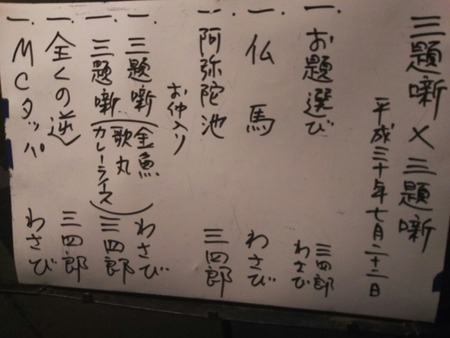 三題噺×三題噺
平成三十年七月二十二日
一、お題選び 三四郎 わさび
一、仏馬 わさび
一、阿弥陀池 三四郎
お仲入り
一、三題噺 わさび
(金魚 歌丸 カレーライス)
一、三題噺 三四郎
一、全くの逆 三四郎
一、MCタッパ わさび